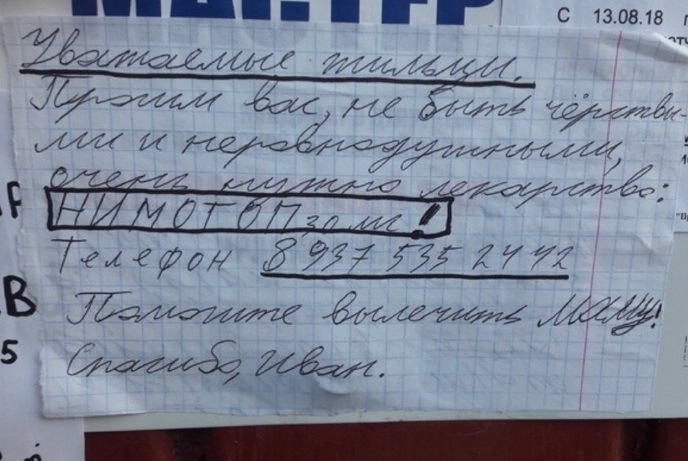 МАСТЕР
С 13.08.18
Уважаемые жильцы.
Просим вас, не быть чёрствы-
ми и неравнодушными,
очень нужно лекарство:
НИМОТОП 30 мг!
Телефон 8 937 535 24 42
Помогите вылечить маму!
Спасибо, Иван.
В
5